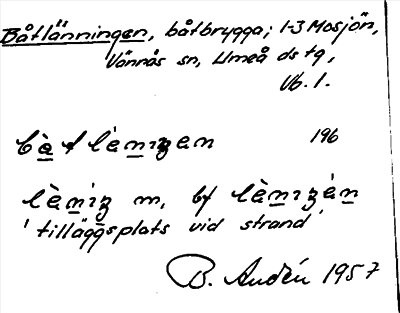 Båtlänningen, båtbrygga; 1-3 Mosjön,
Vännäs sn, Umeå ds tg,
Vb. l.
196
lὲnıŋ m, bf lὲnıŋèn
'tilläggsplats vid strand'
B. Audén 1957